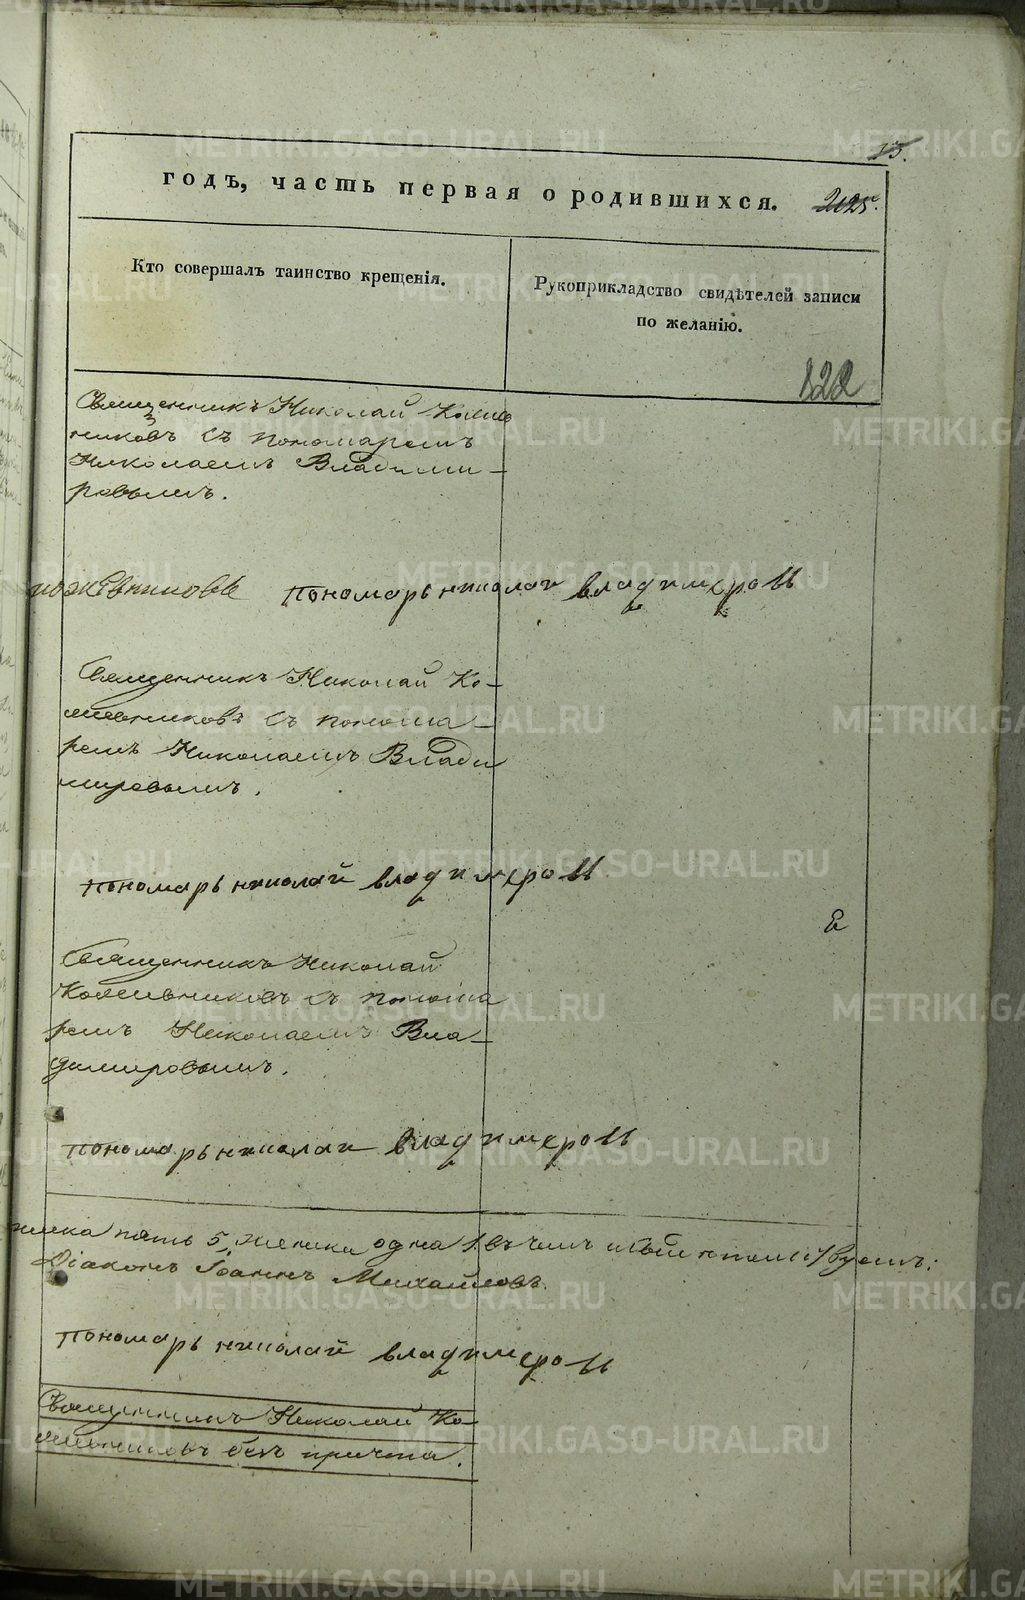 13.
годъ, часть первая о родившихся. 2125.
Кто совершалъ таинство крещенія.
Рукоприкладство свидѣтелей записи
по желанію.
122
Священникъ Николай Кожев
никовъ съ пономаремъ
Николаемъ Владими-
ровымъ.
кожевниковъ пономарь николаи владимеровъ
Священникъ Николай Ко-
жевниковъ съ понома-
ремъ Николаемъ Влади
мировымъ.
пономарь николай владимеровъ
Священникъ Николай
Кожевниковъ съ понома
ремъ Николаемъ Вла-
димировымъ.
пономарь николаи владимеровъ
пять 5, женска одна 1. въ чемъ и свидѣтельствуемъ:
Діаконъ Іоаннъ Михайловъ
пономарь николай владимеровъ
Священникъ Николай Ко-
жевниковъ безъ причта.
METRIKI.GASO-URAL.RU